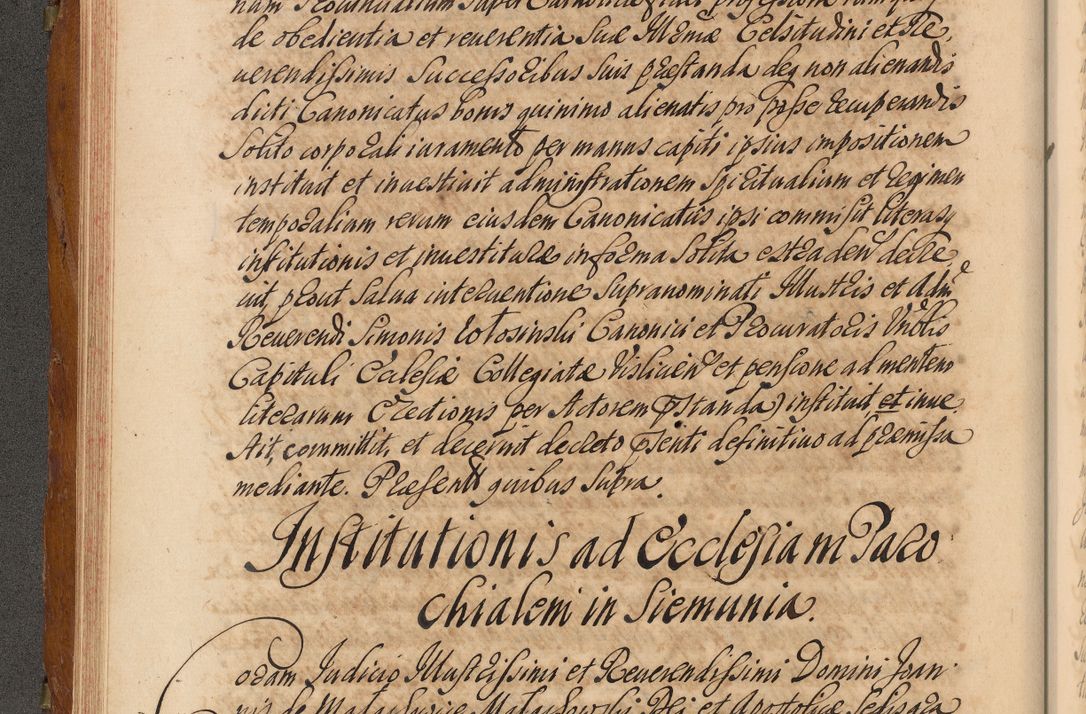 de obedientia et reuerentia Suæ Illmæ Celsitudini et Re,
uerendissimis Successoribus suis præstanda deq non alienandis
dicti Canonicatus bonis quinimo alienatis pro posse recuperandis
Solito corporali iuramento per manus capiti ipsius impositionem
instituit et inuestiuit administrationem Spiritualium et regimen
temporalium rerum eiusdem Canonicatus ipsi commisit literasq
institutionis et inuestituræ in forma Solita extraden decre
uit prout Salua interuentione Supranominati Illustris et Adm
Reuerendi Simonis Canonici et Procuratoris Vnblis
Capituli Ecclesiæ Collegiatæ Vislicien et pensione ad mentem
literarum Erectionis per Actorem præstanda) instituit et inue
stit, committit, et decernit decreto præsenti definitiuo ad præmissa
mediante. Præsentt quibus Supra.
Institutionis ad Ecclesiam Paro
chialem in Siemunia.
oram Judicio Illustrissimi et Reuerendissimi Domini Joan
nis de Malachowice Malachowski Dei et Apostolicæ Sedis gra